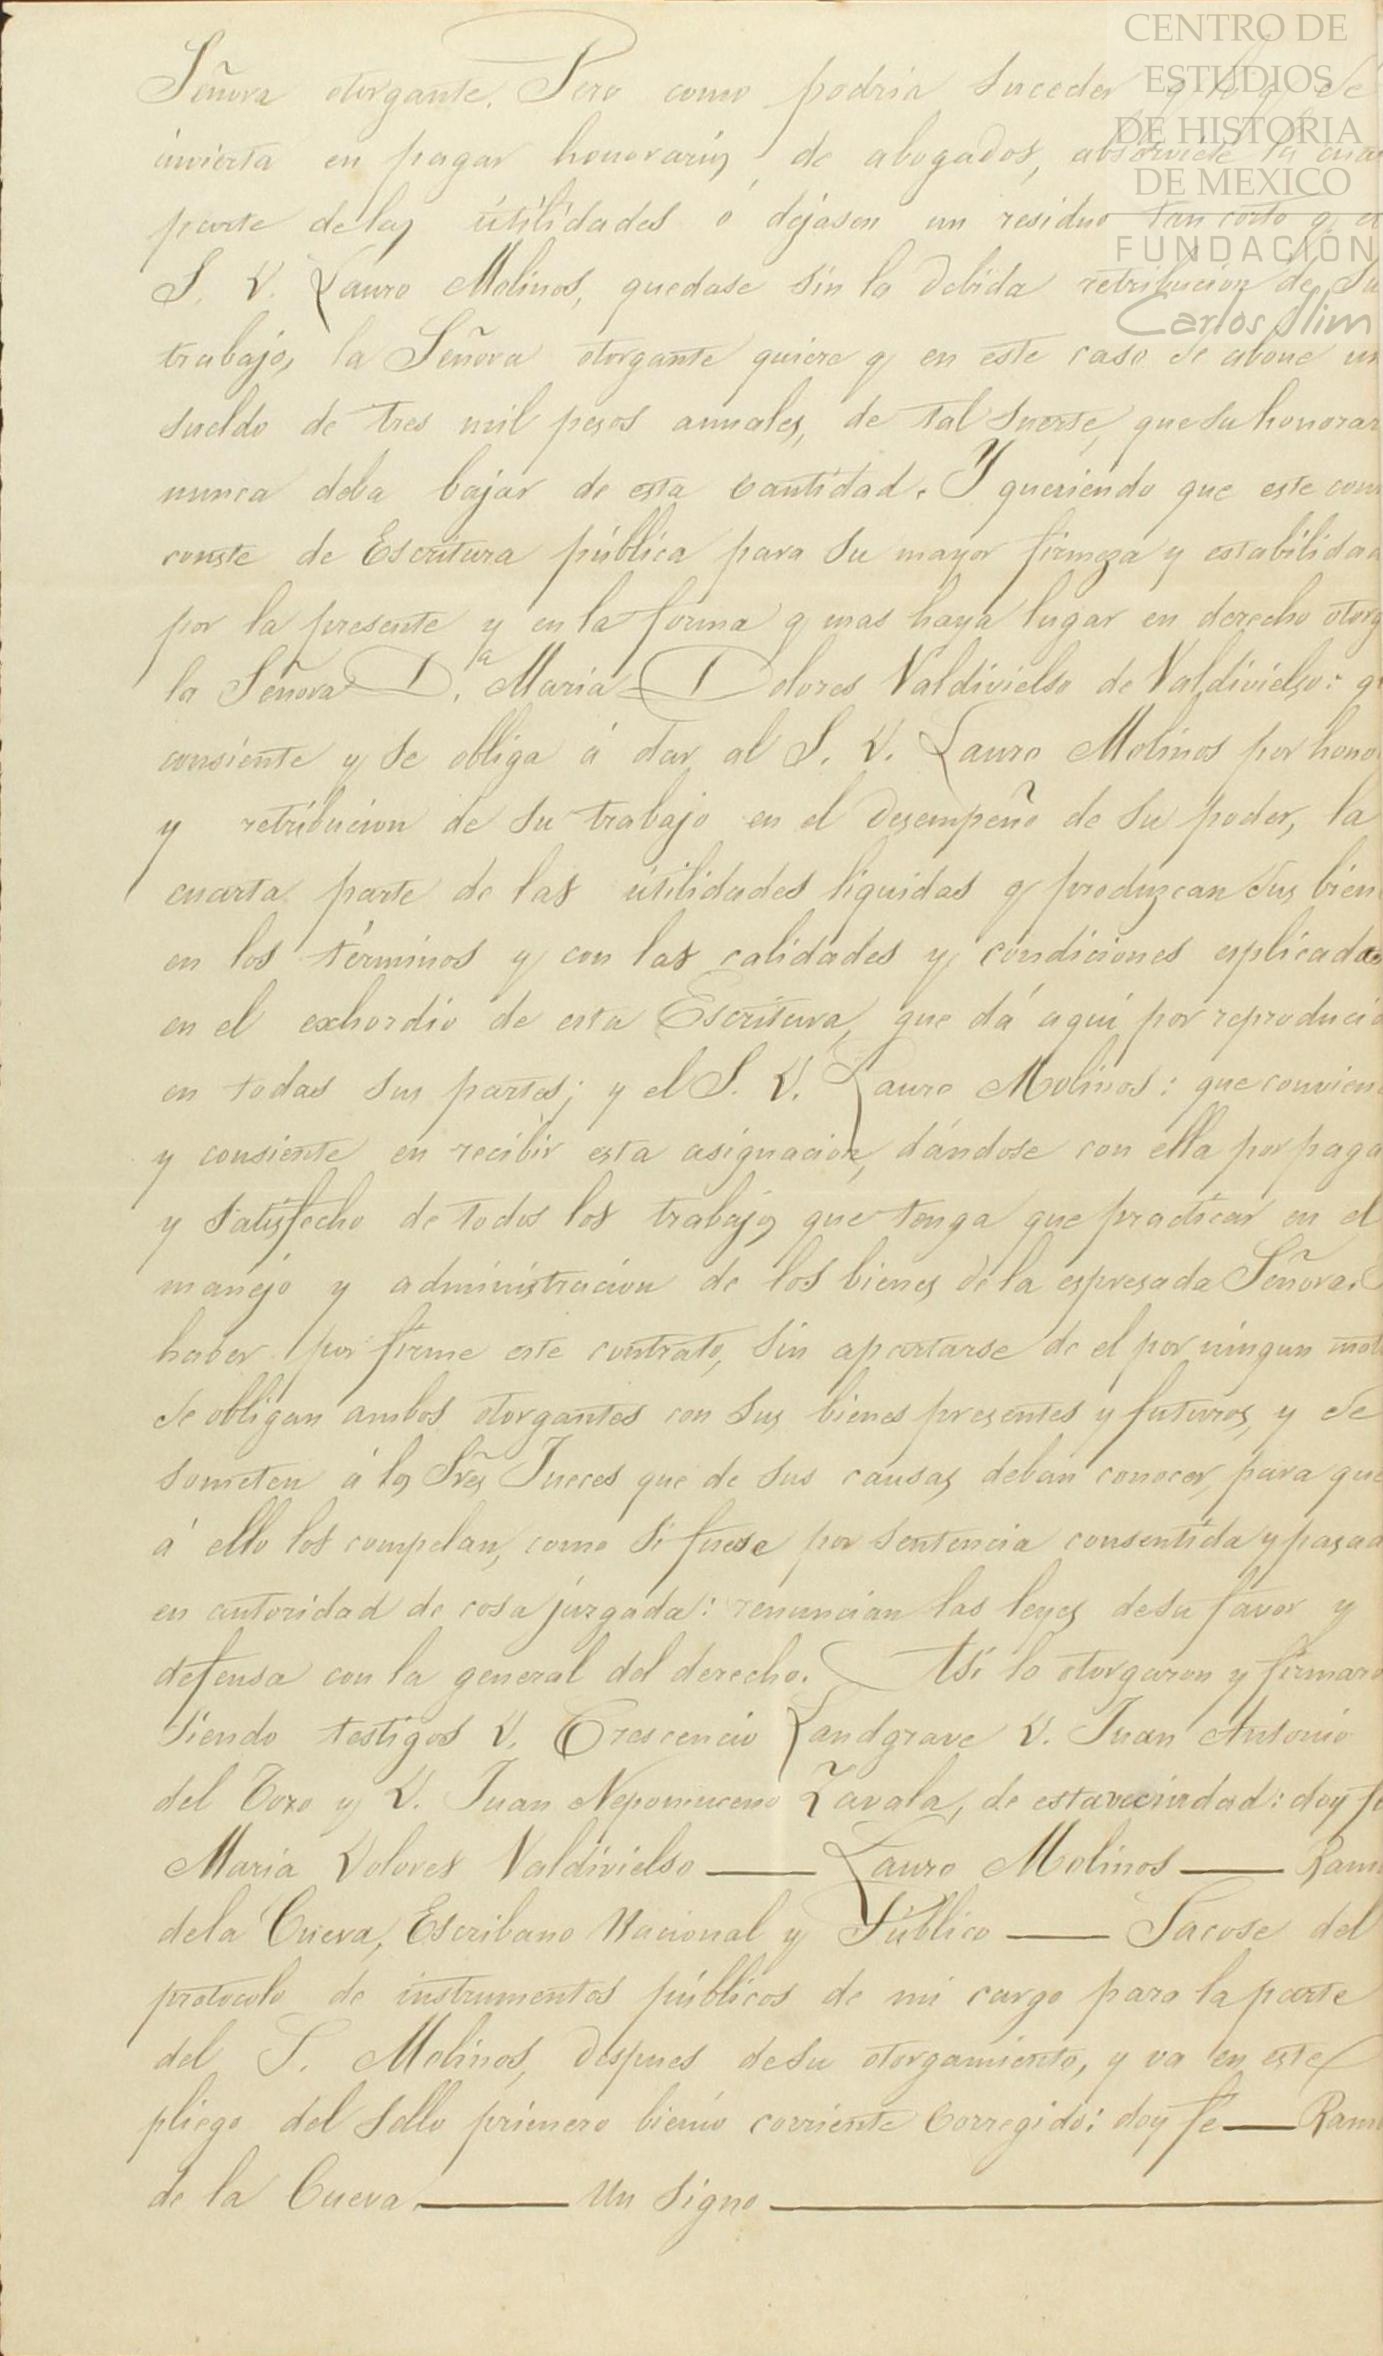 CENTRO DE
ESTUDIOS
DE HISTORIA
DE MEXICO
FUNDACIÓN
Carlos Slim
Señora otorgante. Pero como podria suceder q lo q se
invierta en pagar honorarios de abogados, absorviese la cuar
parte de las útilidades ó dejasen un residuo tan corto q el
S. D. Lauro Molinos, quedase sin la debida retribucion de su
trabajo, la Señora otorgante quiere q en este caso se abone un
sueldo de tres mil pesos anuales, de tal suerte, que su honorar
nunca deba bajar de esta cantidad. Y queriendo que este con
conste de Escritura pública para su mayor firmeza y estabilidad
por la presente y en la forma q mas haya lugar en derecho otorg
la Señora D.ª Maria Dolores Valdivielso de Valdivielso: q
consiente y se obliga á dar al S. D. Lauro Molinos por hono
y retribucion de su trabajo en el desempeño de su poder, la
cuarta parte de las útilidades liquidas q produzcan sus bien
en los términos y con las calidades y condiciones esplicadas
en el exhordio de esta Escritura, que dá aquí por reproducid
en todas sus partes; y el S. D. Lauro Molinos: que convien
y consiente en recibir esta asignacion, dándose con ella por paga
y satisfecho de todos los trabajos que tenga que practicar en el
manejo y administracion de los bienes de la espresada Señora.
haber por firme este contrato, sin apartarse de el por ningun mot
se obligan ambos otorgantes con sus bienes presentes y futuros, y se
someten á los Sres Jueces que de sus causas deban conocer, para que
á ello los compelan, como si fuese por sentencia consentida y pasad
en autoridad de cosa juzgada: renuncian las leyes de su favor y
defensa con la general del derecho. Asi lo otorgaron y firmaro
siendo testigos D. Crescencio Landgrave D. Juan Antonio
del Toro y D. Juan Nepomuceno Zavala, de esta vecindad: doy fe
Maria Dolores Valdivielso —— Lauro Molinos —— Ram
dela Cueva, Escribano Nacional y Público —— Sacose del
protocolo de instrumentos públicos de mi cargo para la parte
del S. Molinos, despues de su otorgamiento, y va en este
pliego del sello primero bienio corriente Corregido: doy fe —— Ram
de la Cueva —— Un signo ——